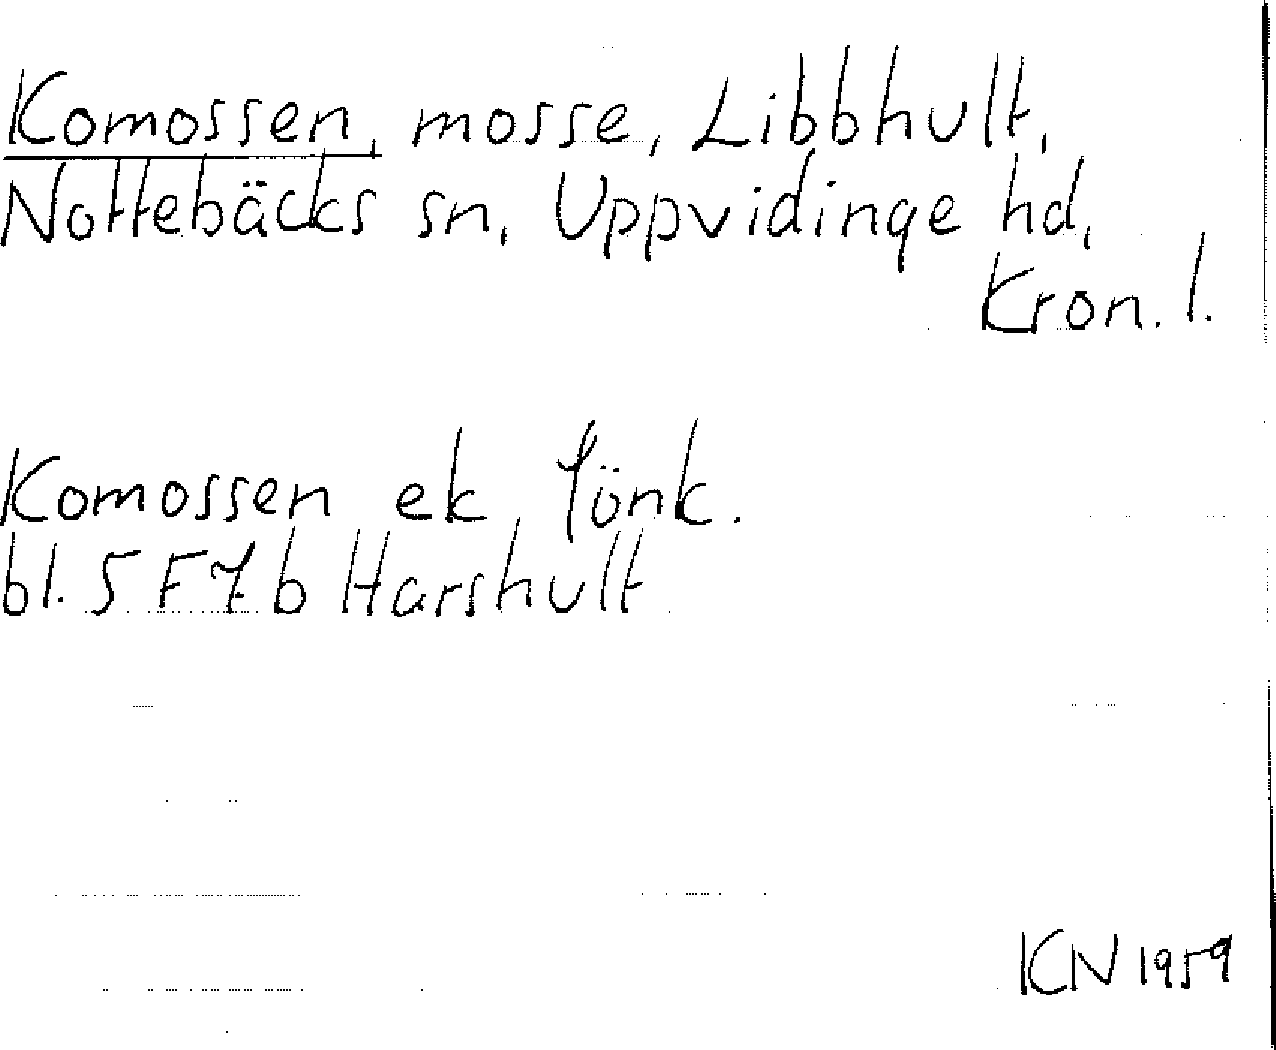 Komossen, mosse, Libbhult,
Nottebäcks sn, Uppvidinge hd,
Kron. l.
Komossen ek
bl. 5 F 7 b Harshult
KN 1959